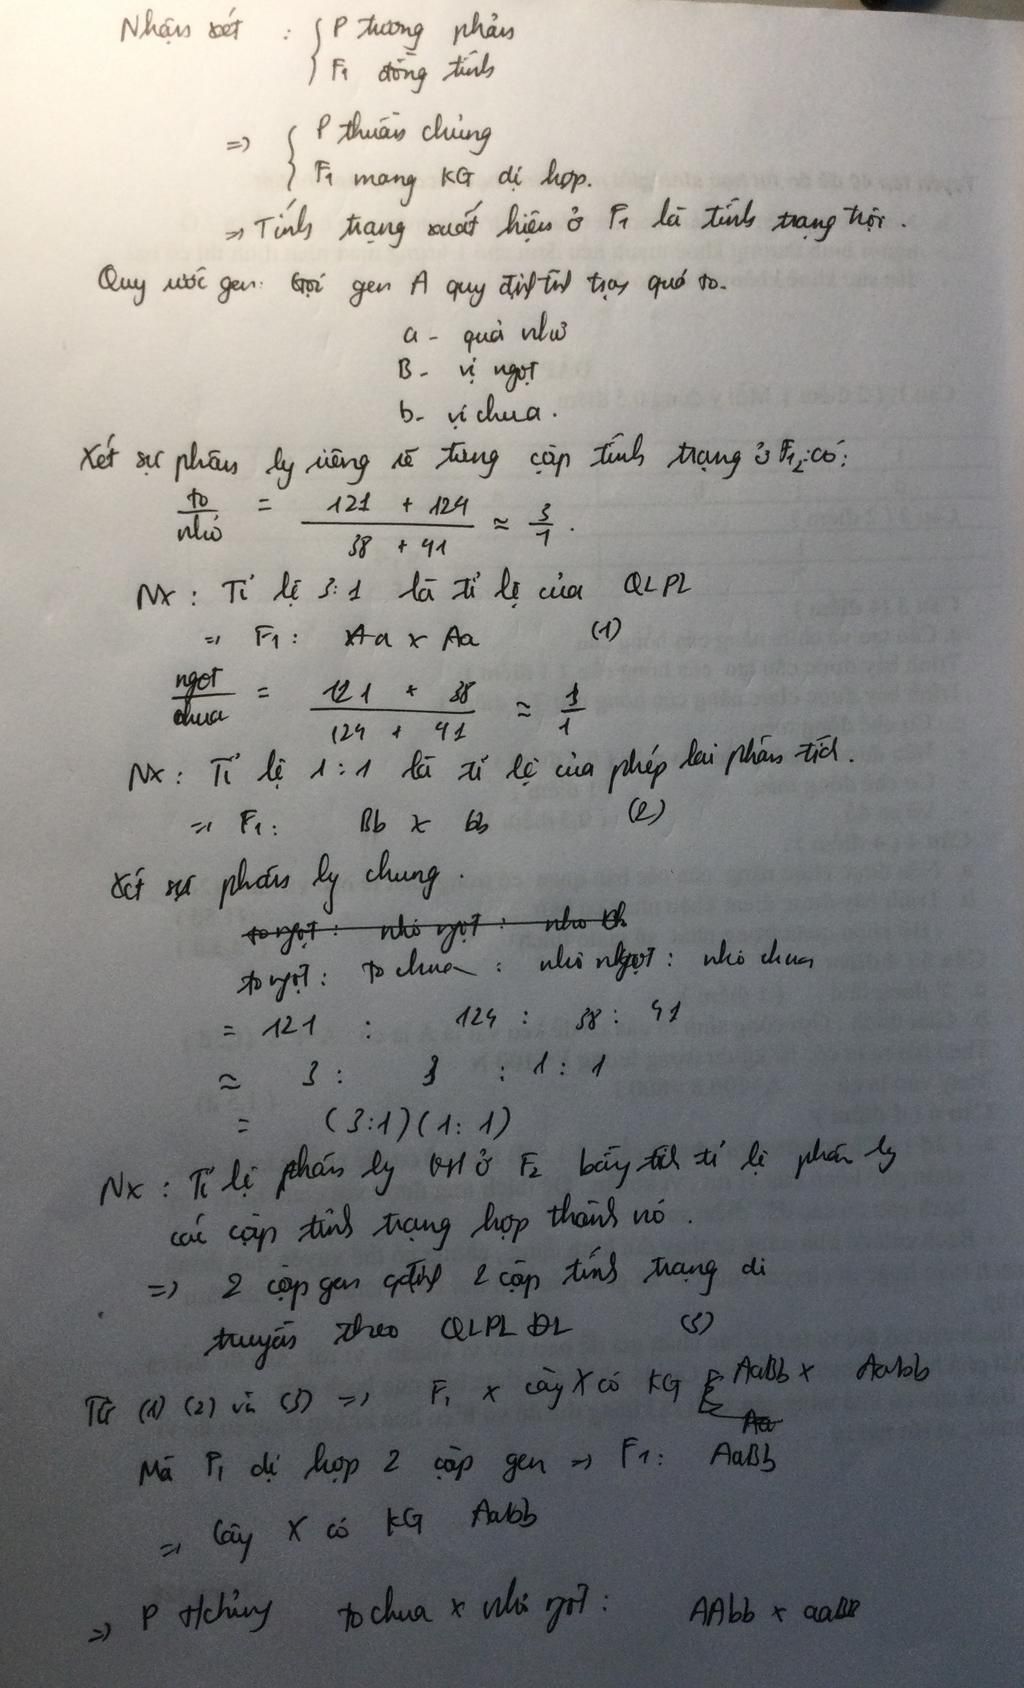 Nhận xét : { P tương phản
F1 đồng tính
=> { P thuần chủng
F1 mang KG dị hợp.
=> Tính trạng xuất hiện ở F1 là tính trạng trội.
Quy ước gen: Gọi gen A quy định tính trạng quả to.
a - quả nhỏ
B - vị ngọt
b - vị chua.
Xét sự phân ly riêng rẽ từng cặp tính trạng ở F2 có:
to/nhỏ = (121 + 124)/(38 + 41) ≈ 3/1.
Nx : Tỉ lệ 3:1 là tỉ lệ của QLPL
=> F1: Aa x Aa (1)
ngọt/chua = (121 + 38)/(124 + 41) ≈ 1/1
Nx : Tỉ lệ 1:1 là tỉ lệ của phép lai phân tích.
=> F1: Bb x bb (2)
Xét sự phân ly chung.
to ngọt : nhỏ ngọt : nhỏ ch
to ngọt : to chua : nhỏ ngọt : nhỏ chua
= 121 : 124 : 38 : 41
≈ 3 : 3 : 1 : 1
= (3:1)(1:1)
Nx : Tỉ lệ phân ly KH ở F2 bằng tích tỉ lệ phân ly
các cặp tính trạng hợp thành nó.
=> 2 cặp gen qđịnh 2 cặp tính trạng di
truyền theo QLPL ĐL (3)
Từ (1) (2) và (3) => F1 x cây X có KG AaBb x Aabb
Aa
Mà F1 dị hợp 2 cặp gen => F1: AaBb
=> Cây X có KG Aabb
=> P t/chủng to chua x nhỏ ngọt : AAbb x aaBB